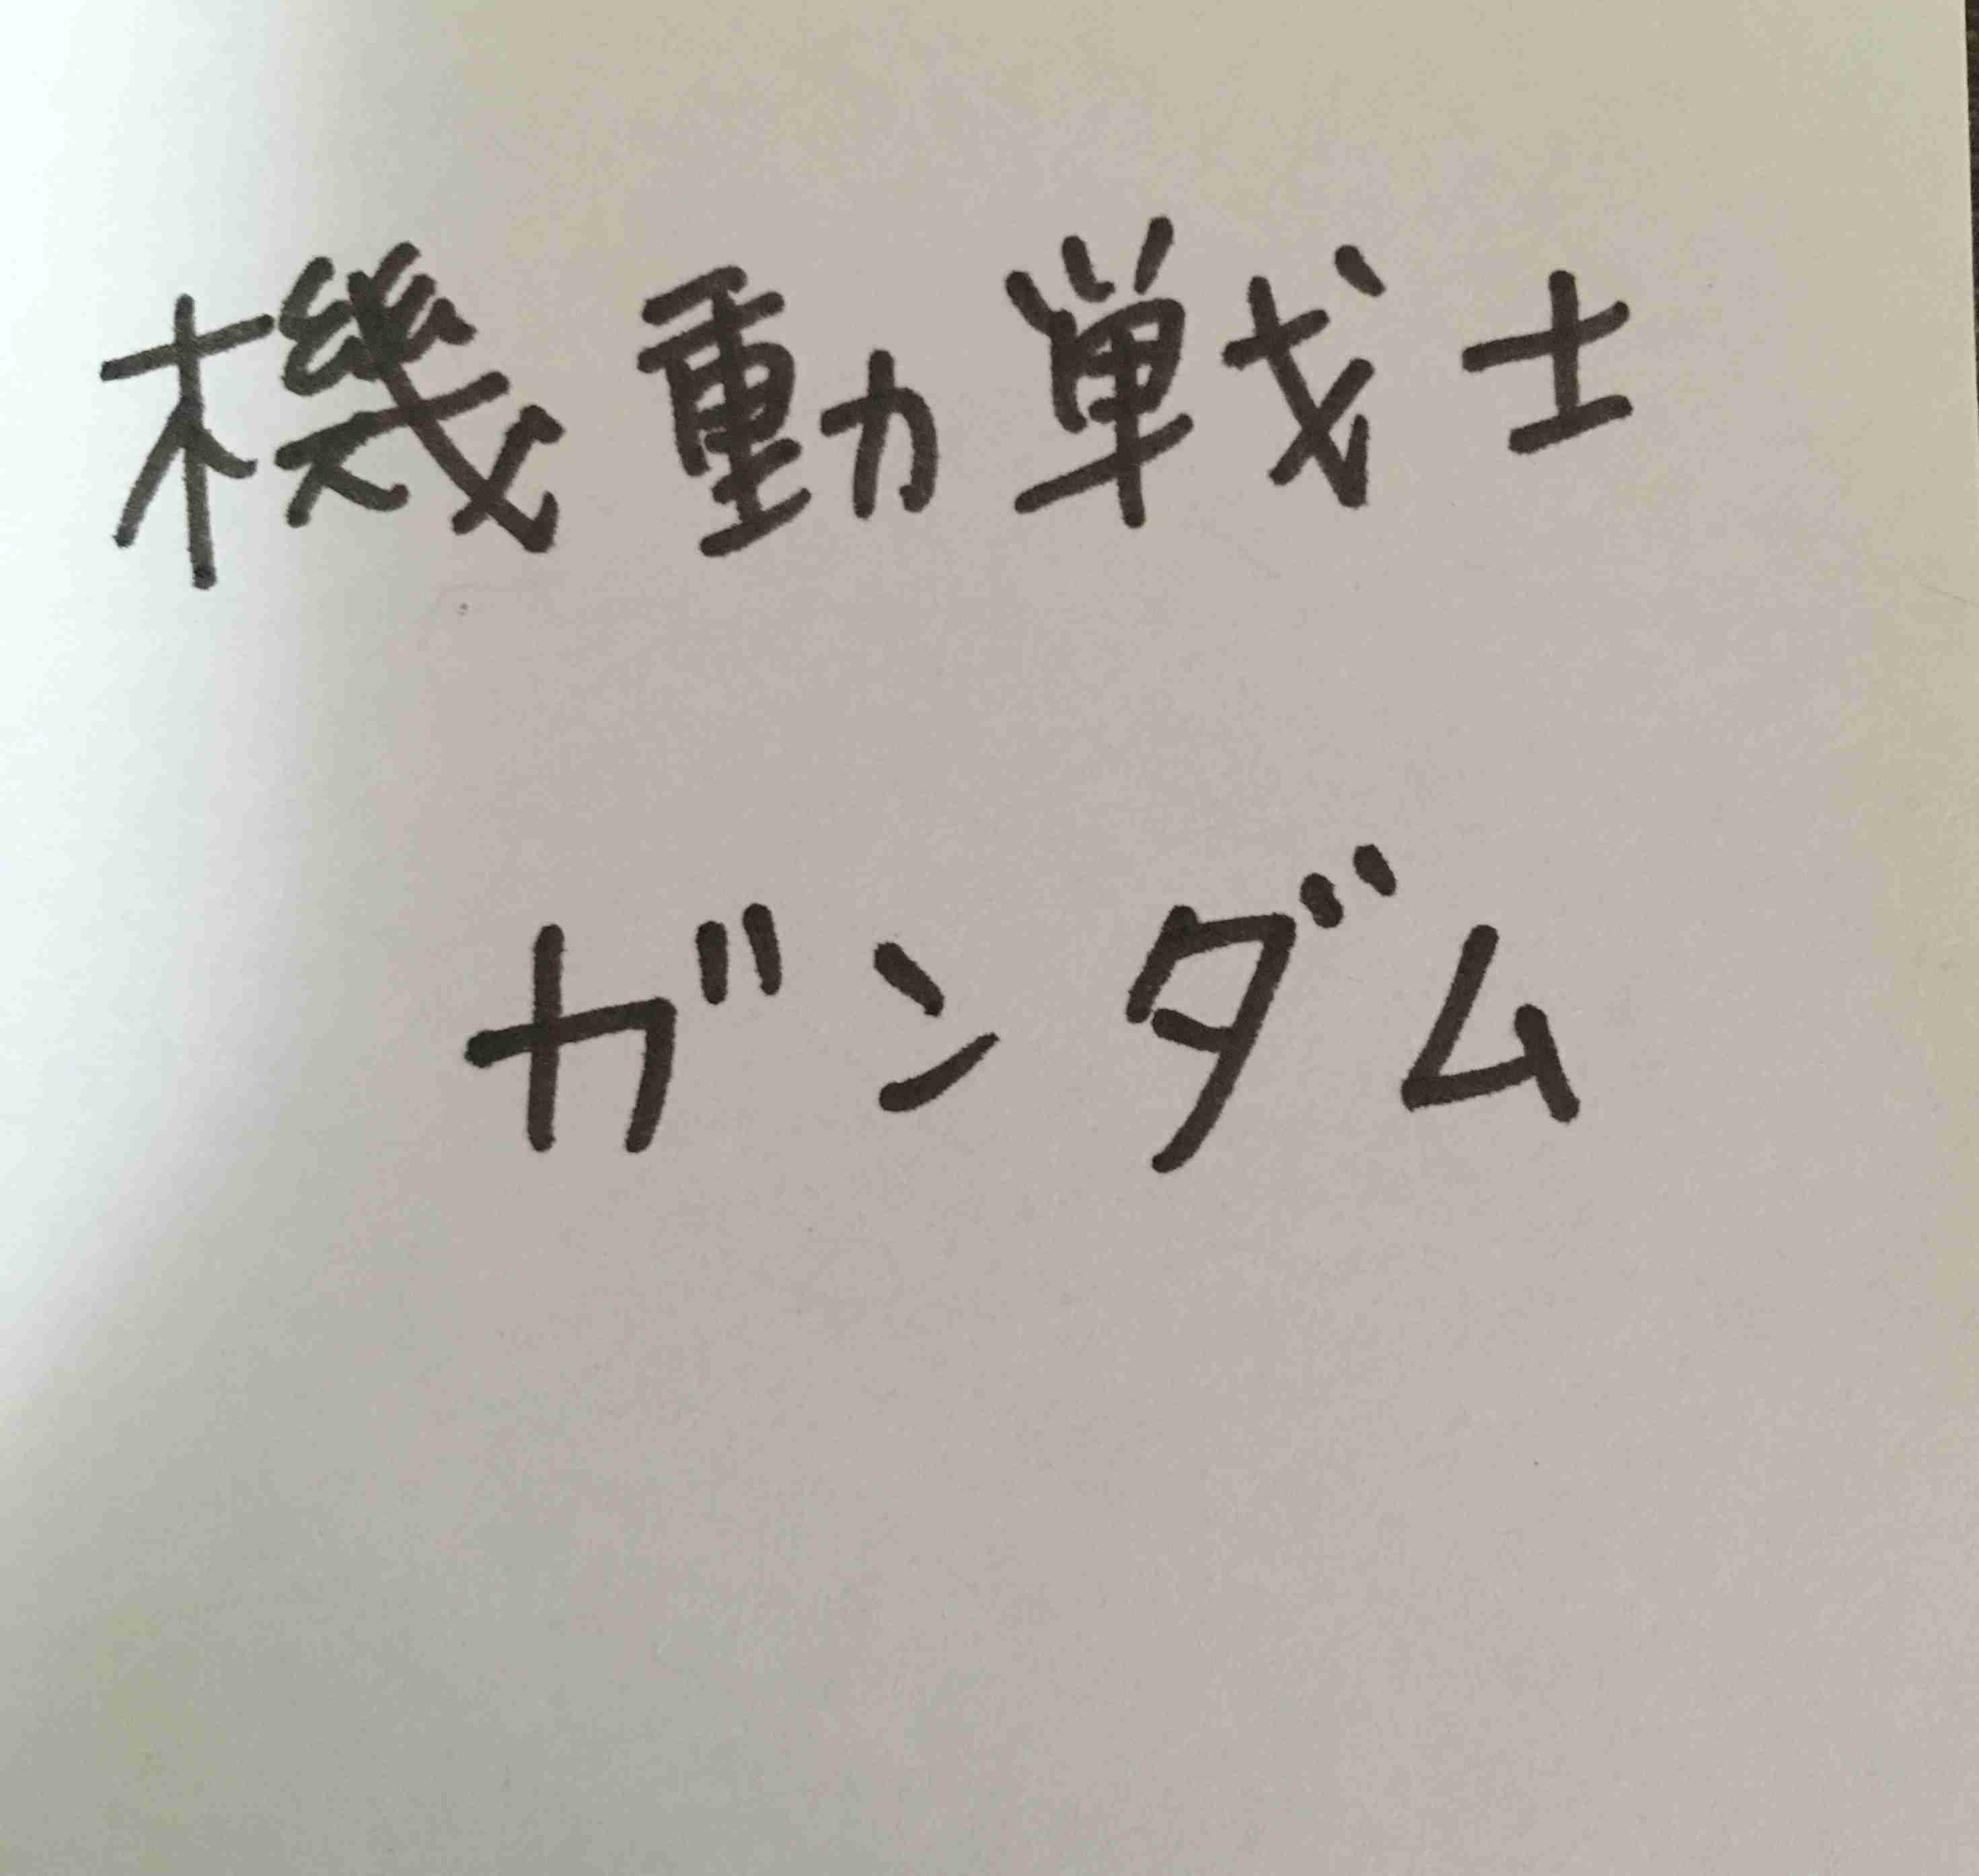 機動戦士
ガンダム